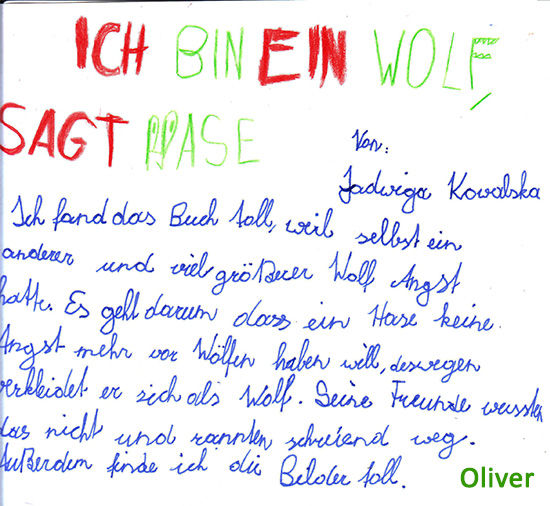 ICH BIN EIN WOLF,
SAGT HASE
Von:
Jadwiga Kowalska
Ich fand das Buch toll, weil selbst ein
anderer und viel größerer Wolf Angst
hatte. Es geht darum dass ein Hase keine
Angst mehr vor Wölfen haben will, deswegen
verkleidet er sich als Wolf. Seine Freunde wussten
das nicht und rannten schreiend weg.
Außerdem finde ich die Bilder toll.
Oliver